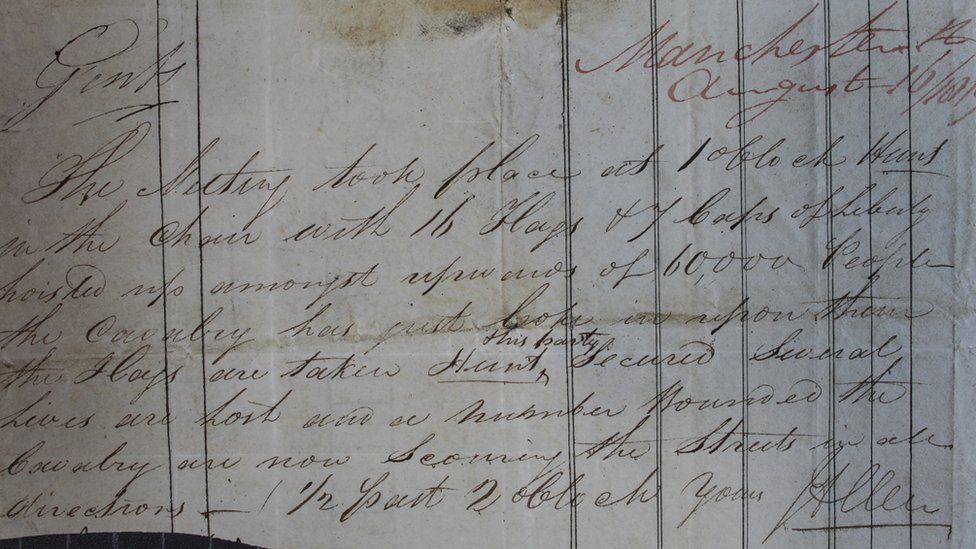 Manchester
Gents August 16/1819
The Meeting took place at 1 oClock Hunt
in the Chair with 16 Flags & 7 Caps of Liberty
hoisted up amongst upwards of 60,000 People
the Cavalry has just broke in upon them
this party
the Flags are taken Hunt, Secured Several
lives are lost and a number Wounded the
Cavalry are now Scouring the Streets in all
directions — ( 1/2 past 2 oClock Yours JAllen